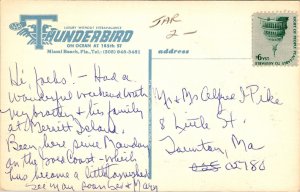 LUXURY WITHOUT EXTRAVAGANCE
THUNDERBIRD
ON OCEAN AT 185th ST
Miami Beach, Fla., Tel.: (305)
JAR
2-
address
Hi, folks! - Had a
wonderful weekend with
my brother & his family
at Merritt Island.
Been here since Monday
on the Gold Coast - which
has become a little
See you soon Love &
Mr & Mrs Alfred J Pike
8 Little St.
Taunton, Ma
02780